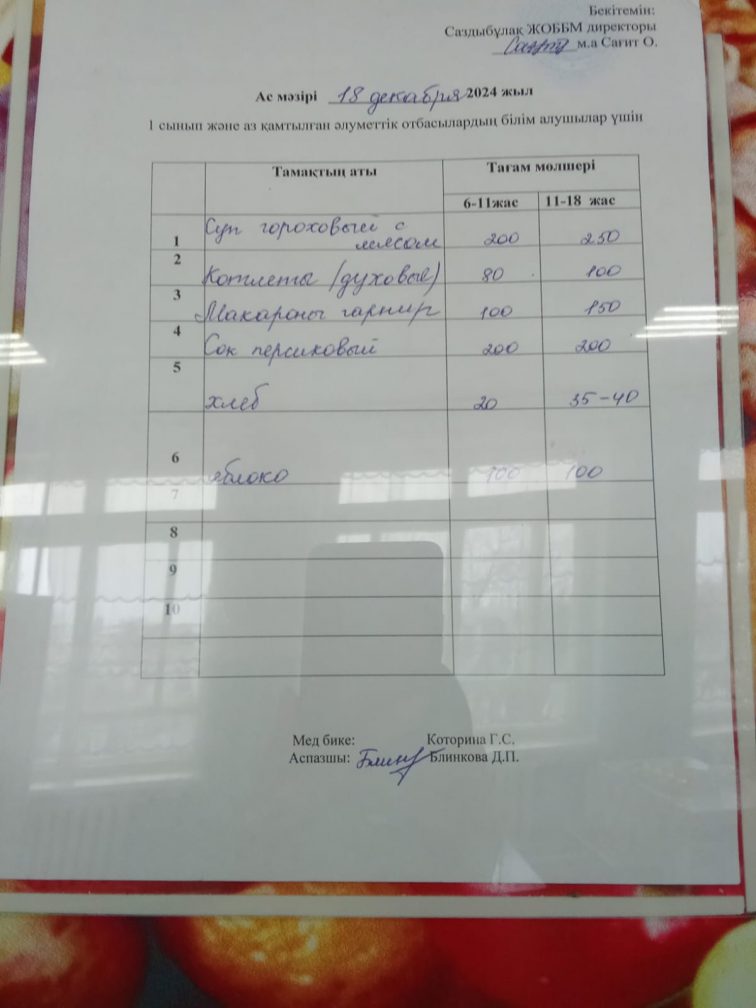 Бекітемін:
Саздыбұлақ ЖОББМ директоры
м.а Сағит О.
Ас мәзірі 18 декабря 2024 жыл
1 сынып және аз қамтылған әлуметтік отбасылардың білім алушылар үшін
Тамақтың аты Тағам мөлшері
6-11жас 11-18 жас
1 Суп гороховый с
мясом 200 250
2 Котлеты (духовые) 80 100
3 Макароны гарнир 100 150
4 Сок персиковый 200 200
5 хлеб 20 35-40
6 яблоко 100 100
7
8
9
10
Мед бике: Которина Г.С.
Аспазшы: Блинкова Д.П.